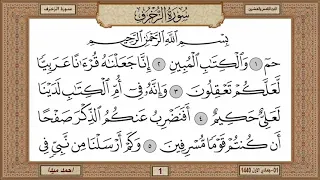 الجزء الخامس والعشرون
سورة الزخرف
سُورَةُ الزُّخْرُفِ
بِسْمِ اللَّهِ الرَّحْمَٰنِ الرَّحِيمِ
حمٓ ١ وَالْكِتَٰبِ الْمُبِينِ ٢ إِنَّا جَعَلْنَٰهُ قُرْءَٰنًا عَرَبِيًّا
لَّعَلَّكُمْ تَعْقِلُونَ ٣ وَإِنَّهُۥ فِىٓ أُمِّ الْكِتَٰبِ لَدَيْنَا
لَعَلِىٌّ حَكِيمٌ ٤ أَفَنَضْرِبُ عَنكُمُ الذِّكْرَ صَفْحًا
أَن كُنتُمْ قَوْمًا مُّسْرِفِينَ ٥ وَكَمْ أَرْسَلْنَا مِن نَّبِىٍّ فِى
01-جمادى الأول 1440
1